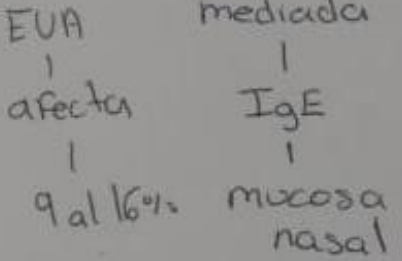 EUA
afecta
9 al 16%
mediada
IgE
mucosa
nasal